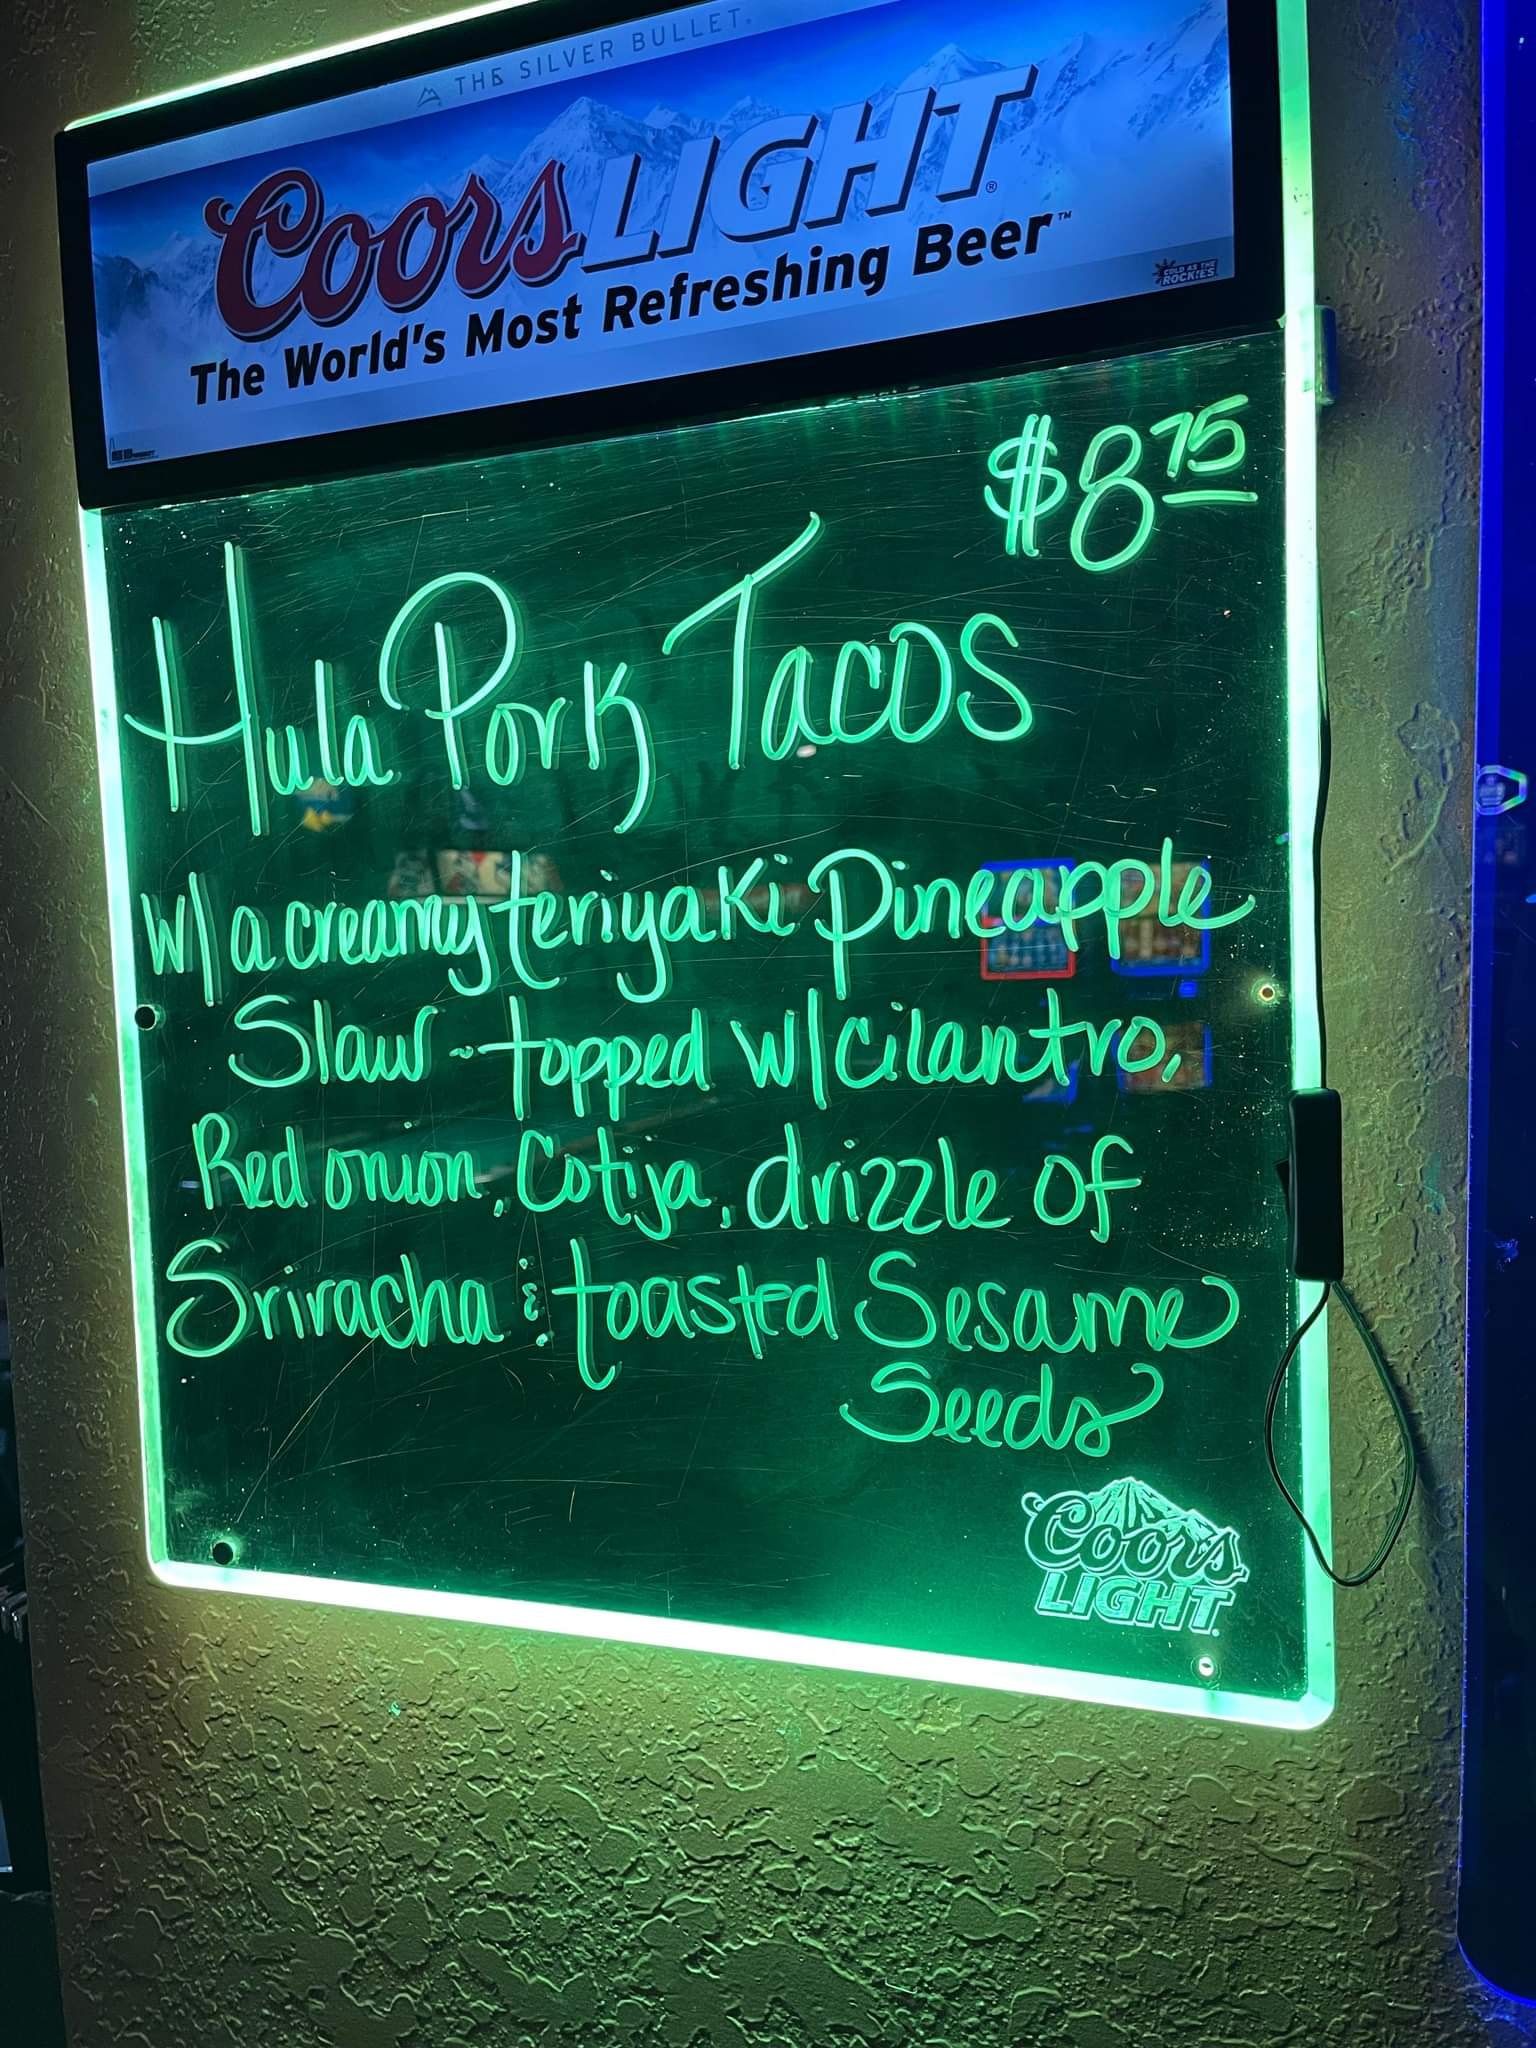 THE SILVER BULLET.
Coors LIGHT®
The World's Most Refreshing Beer™
COLD AS THE
ROCKIES
$8.75
Hula Pork Tacos
w/ a creamy teriyaki Pineapple
Slaw - topped w/ cilantro,
Red onion, Cotija, drizzle of
Sriracha & toasted Sesame
Seeds
Coors
LIGHT